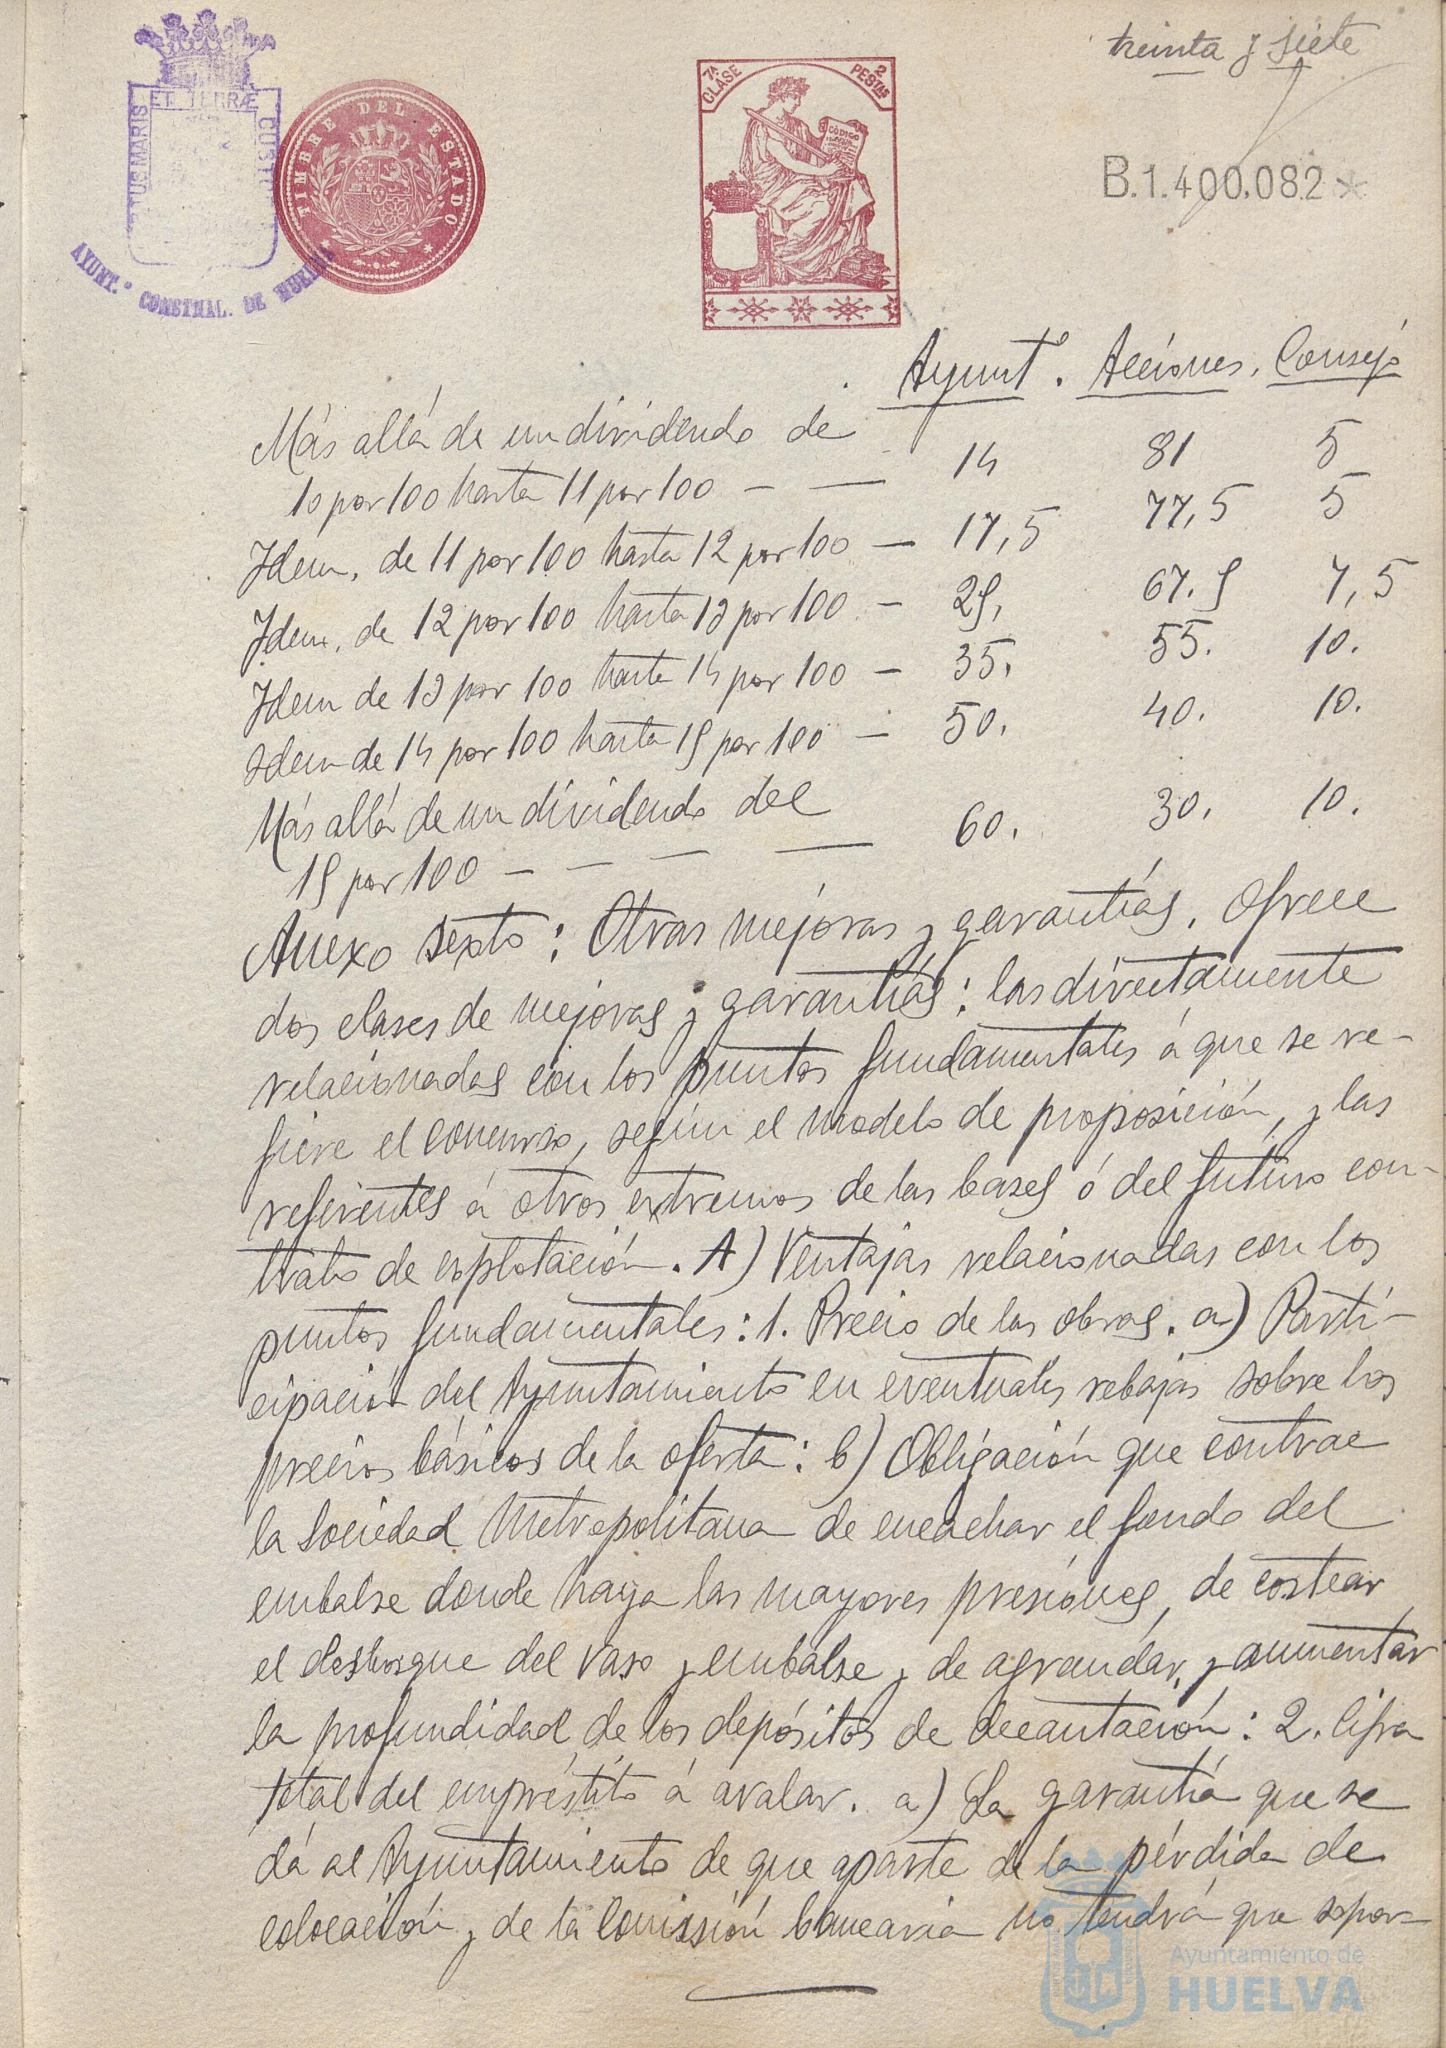 treinta y siete
PORTUS MARIS ET TERRÆ CUSTODIA
AYUNT.º CONSTNAL. DE HUELVA
TIMBRE DEL ESTADO
7ª CLASE
2 PESTAS
CÓDIGO
B.1.400.082*
Ayuntº. Acciones. Consejo
Más allá de un dividendo de
10 por 100 hasta 11 por 100 — — 14 81 5
Idem. de 11 por 100 hasta 12 por 100 — 17,5 77,5 5
Idem. de 12 por 100 hasta 13 por 100 — 25, 67.5 7,5
Idem de 13 por 100 hasta 14 por 100 — 35. 55. 10.
Idem de 14 por 100 hasta 15 por 100 — 50. 40. 10.
Más allá de un dividendo del
15 por 100 — — — — 60. 30. 10.
Anexo sexto: Otras mejoras y garantías. Ofrece
dos clases de mejoras y garantías: las directamente
relacionadas con los puntos fundamentales á que se re-
fiere el concurso, según el modelo de proposición, y las
referentes á otros extremos de las bases ó del futuro con-
trato de explotación. A) Ventajas relacionadas con los
puntos fundamentales: 1. Precio de las obras. a) Parti-
cipación del Ayuntamiento en eventuales rebajas sobre los
precios básicos de la oferta: b) Obligación que contrae
la Sociedad Metropolitana de encachar el fondo del
embalse donde haya las mayores presiones, de costear
el desbosque del vaso y embalse y de agrandar y aumentar
la profundidad de los depósitos de decantación: 2. Cifra
total del empréstito á avalar. a) La garantía que se
dá al Ayuntamiento de que aparte de la pérdida de
colocación y de la Comisión bancaria no tendrá que sopor-
Ayuntamiento de
HUELVA